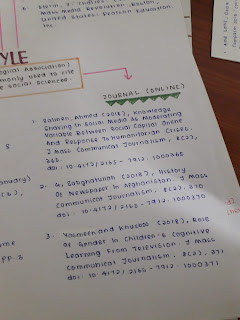 Mass Media Revolution, Boston,
United States: Pearson Education,
Inc.
STYLE
Association)
monly used to cite
e social sciences.
JOURNAL (ONLINE)
1. Rahman, Ahmad (2018), Knowledge
Sharing In Social Media As Moderating
Variable Between Social Capital Online
And Response To Humanitarian Crises.
J Mass Communicat Journalism, 8(2),
365.
doi: 10.4172/2165-7912.1000365
2. G, Sabghatullah (2018), History
Of Newspaper In Afghanistan. J Mass
Communicat Journalism, 8(2), 370
doi: 10.4172/2165-7912.1000370
3. Yasmeen and Khushboo (2018), Role
of Gender In Children's Cognitive
Learning From Television. J Mass
Communicat Journalism, 8(2), 371
doi: 10.4172/2165-7912.1000371